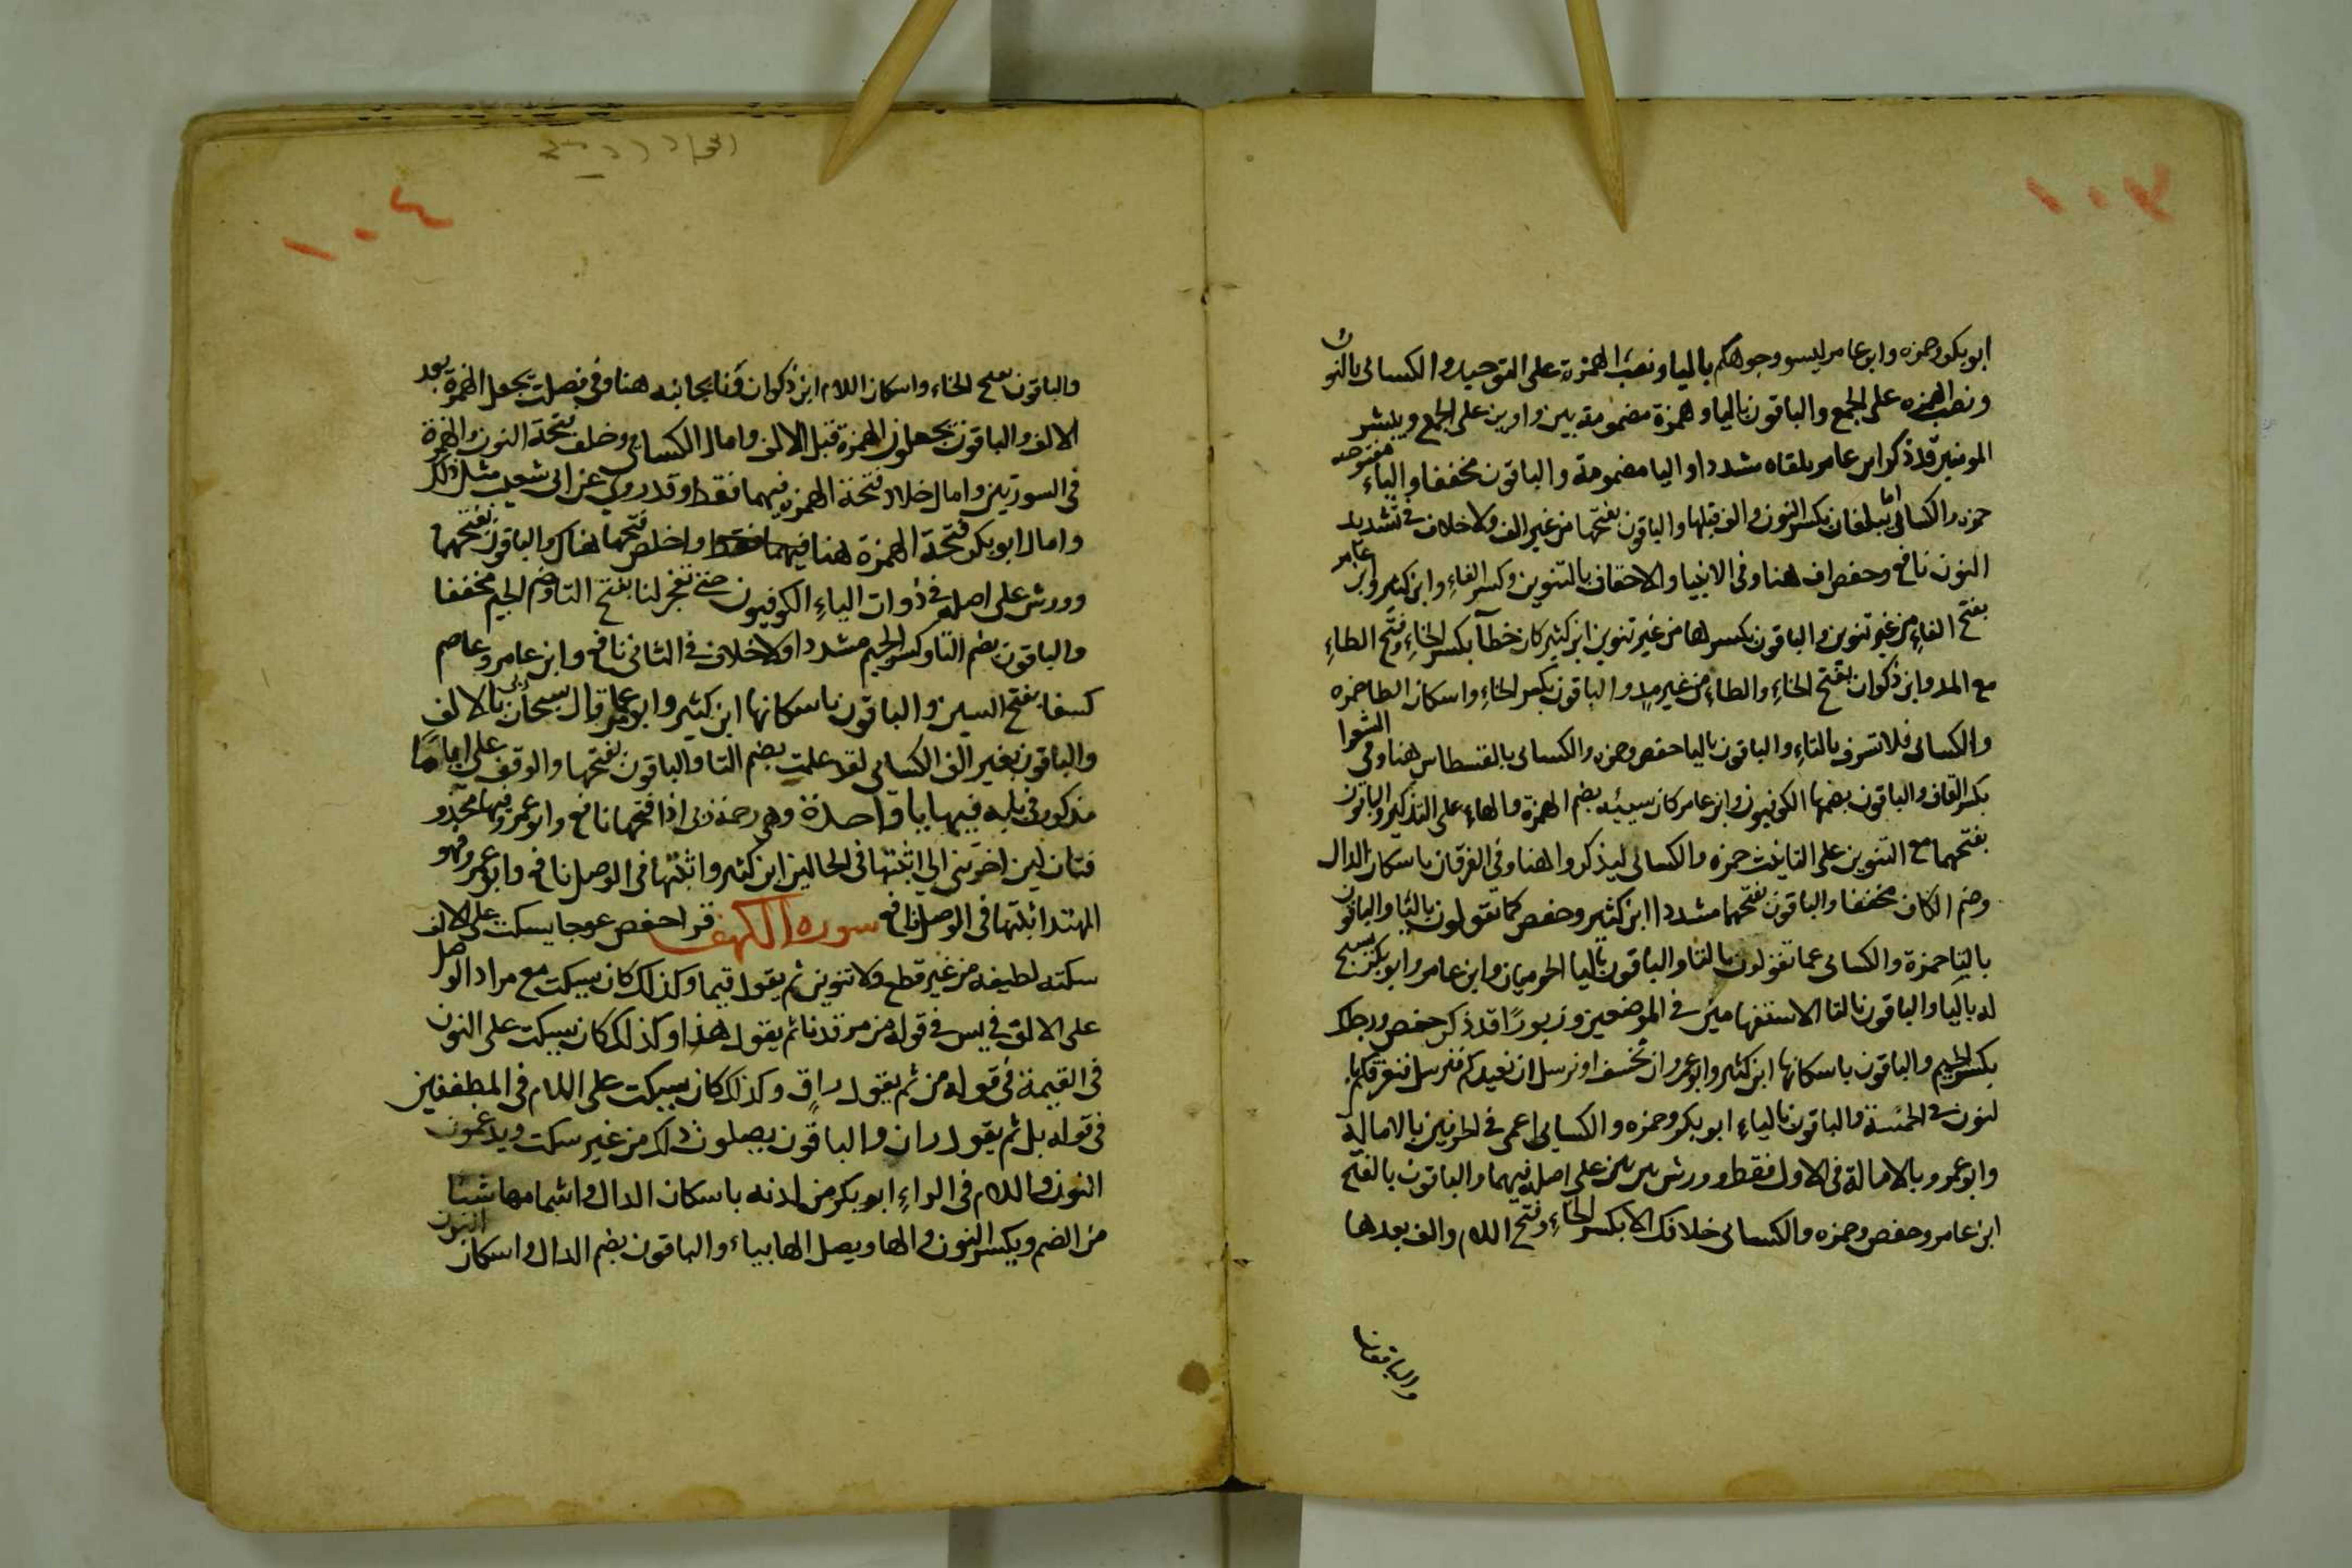 ١٠٣
ابو بكر وحمزه وابن عامر ليسوو جوهكم باليا ونصب الهمزة على التوحيد والكسائى بالنون
ونصب الهمزه على الجمع والباقون باليا وهمزة مضمومة بين واوين على الجمع ويبشر
المومنين قد ذكر ابن عامر يلقاه مشددا واليا مضمومة والباقون مخففا والياء مفتوحه
حمزه والكسائى اما يبلغان بكسر النون والف قبلها والباقون بفتحها من غير الف ولا خلاف فى تشديد
النون نافع وحفص اف هنا وفى الانبيا والاحقاف بالتنوين وكسر الفاءِ وابن كثير وابن عامر
بفتح الفاءِ من غير تنوين والباقون بكسرها من غير تنوين ابن كثير كان خطآ بكسر الخاءِ وفتح الطاءِ
مع المد وابن ذكوان بفتح الخاءِ والطاء من غير مدٍ والباقون بكسر الخاءِ واسكان الطا حمزه
والكسائى فلا تسرف بالتاءِ والباقون باليا حفص وحمزه والكسائى بالقسطاس هنا وفى الشعرا
بكسر القاف والباقون بضمها الكوفيون وابن عامر كان سيئه بضم الهمزة والهاءِ على التذكير والباقون
بفتحهما مع التنوين على التانيث حمزه والكسائى ليذكروا هنا وفى الفرقان باسكان الدال
وضم الكاف مخففا والباقون بفتحهما مشددا ابن كثير وحفص كما تقولون باليا والباقون
بالتا حمزة والكسائى عما تقولون بالتا والباقون باليا الحرميان وابن عامر وابو بكر يسبح
له باليا والباقون بالتا الاستفهامين فى الموضعين وزبورًا قد ذكر حفص ورجلك
بكسر الجيم والباقون باسكانها ابن كثير وابو عمرو ان نخسف او نرسل ان نعيدكم فنرسل فنغرقكم بال
لنون فى الخمسة والباقون بالياءِ ابو بكر وحمزه والكسايى اعمى فى الحرفين بالامالة
وابو عمرو بالامالة فى الاول فقط وورش بين بين على اصله فيهما والباقون بالفتح
ابن عامر وحفص وحمزه والكسائى خلافك الا بكسر الخاءِ وفتح اللام والف بعدها
والباقون
١٠٤
والباقون بفتح الخاء واسكان اللام ابن ذكوان ونأ بجانبه هنا وفى فصلت يجعل الهمزة بعد
الالف والباقون يجعلون الهمزة قبل الالف وامال الكسائى وخلف فتحة النون والهمزة
فى السورتين وامال خلاد فتحة الهمزه فيهما فقط وقد روى عن ابى شعيب مثل ذلك
وامال ابو بكر فتحة الهمزة هنا فيهما فقط واخلص فتحها هناك والباقون بفتحهما
وورش على اصله فى ذوات الياءِ الكوفيون حتى تفجر لنا بفتح التا وضم الجيم مخففا
والباقون بضم التا وكسر الجيم مشددا ولا خلاف فى الثانى نافع وابن عامر وعاصم
كسفا بفتح السين والباقون باسكانها ابن كثير وابن عامر قال سبحان ربى بالالف
والباقون بغير الف الكسائى لقد علمت بضم التا والباقون بفتحها والوقف على اياما
مذكور فى بابه فيها يا واحدة وهى رحمة ربى اذا فتحها نافع وابو عمرو وفيها محذو
فتان لين اخرتنى الى اثبتها فى الحالين ابن كثير واثبتها فى الوصل نافع وابو عمرو فهو
المهتد اثبتها فى الوصل نافع سوره الكهف قرا حفص عوجا يسكت على الالف
سكته لطيفه من غير قطع ولا تنوين ثم يقول قيما وكذلك كان يسكت مع مراد الوصل
على الالف فى يس فى قوله من مرقدنا ثم يقول هذا وكذلك كان يسكت على النون
فى القيمة فى قوله من ثم يقول راقٍ وكذلك كان يسكت على اللام فى المطففين
فى قوله بل ثم يقول ران والباقون يصلون ذلك من غير سكت ويدغمون
النون واللام فى الراءِ ابو بكر من لدنه باسكان الدال واشمامها شيئا
من الضم وبكسر النون والها ويصل الها بياء والباقون بضم الدال واسكان النون